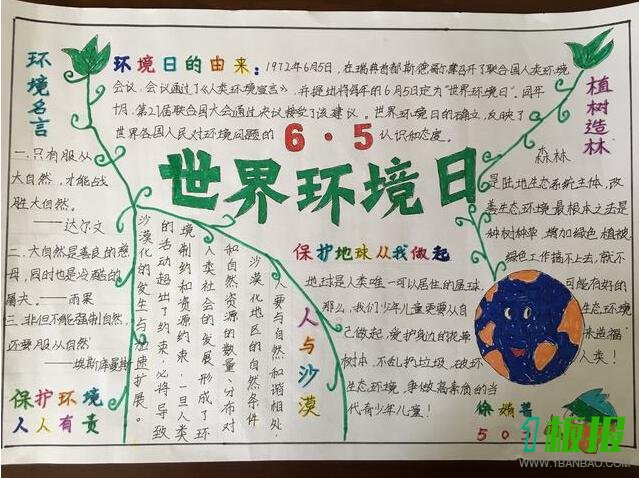 环境名言
一.只有服从
大自然,才能战
胜大自然。
——达尔文
二.大自然是善良的慈
母,同时也是冷酷的
屠夫。——雨果
三.非但不能强制自然,
还要服从自然
——埃斯库曼斯
保护环境
人人有责
环境日的由来:1972年6月5日,在瑞典首都斯德哥尔摩召开了联合国人类环境
会议,会议通过了《人类环境宣言》,并提出将每年的6月5日定为"世界环境日"。同年
十月,第27届联合国大会通过决议接受了该建议。世界环境日的确立,反映了
世界各国人民对环境问题的
认识和态度。
6·5
世界环境日
植树造林
森林
是陆地生态系统主体,改
善生态环境最根本之法是
种树种草,增加绿色植被,
绿色工作搞不上去,就不
可能有好的
生态环境
来造福
人类!
保护地球从我做起
地球是人类唯一可以居住的星球,
那么,我们少年儿童更要从自
己做起,爱护身边的花草
树木,不乱扔垃圾,破坏
生态环境,争做高素质的当
代青少年儿童!
人与沙漠
人要与自然和谐相处,
沙漠化地区的自然条件
和自然资源的数量、分布对
人类社会的发展形成了环
境制约和资源约束,一旦人类
的活动超出了约束,必将导致
沙漠化的发生与加速扩展。
徐嫣
503
1板报
WWW.1BANBAO.COM